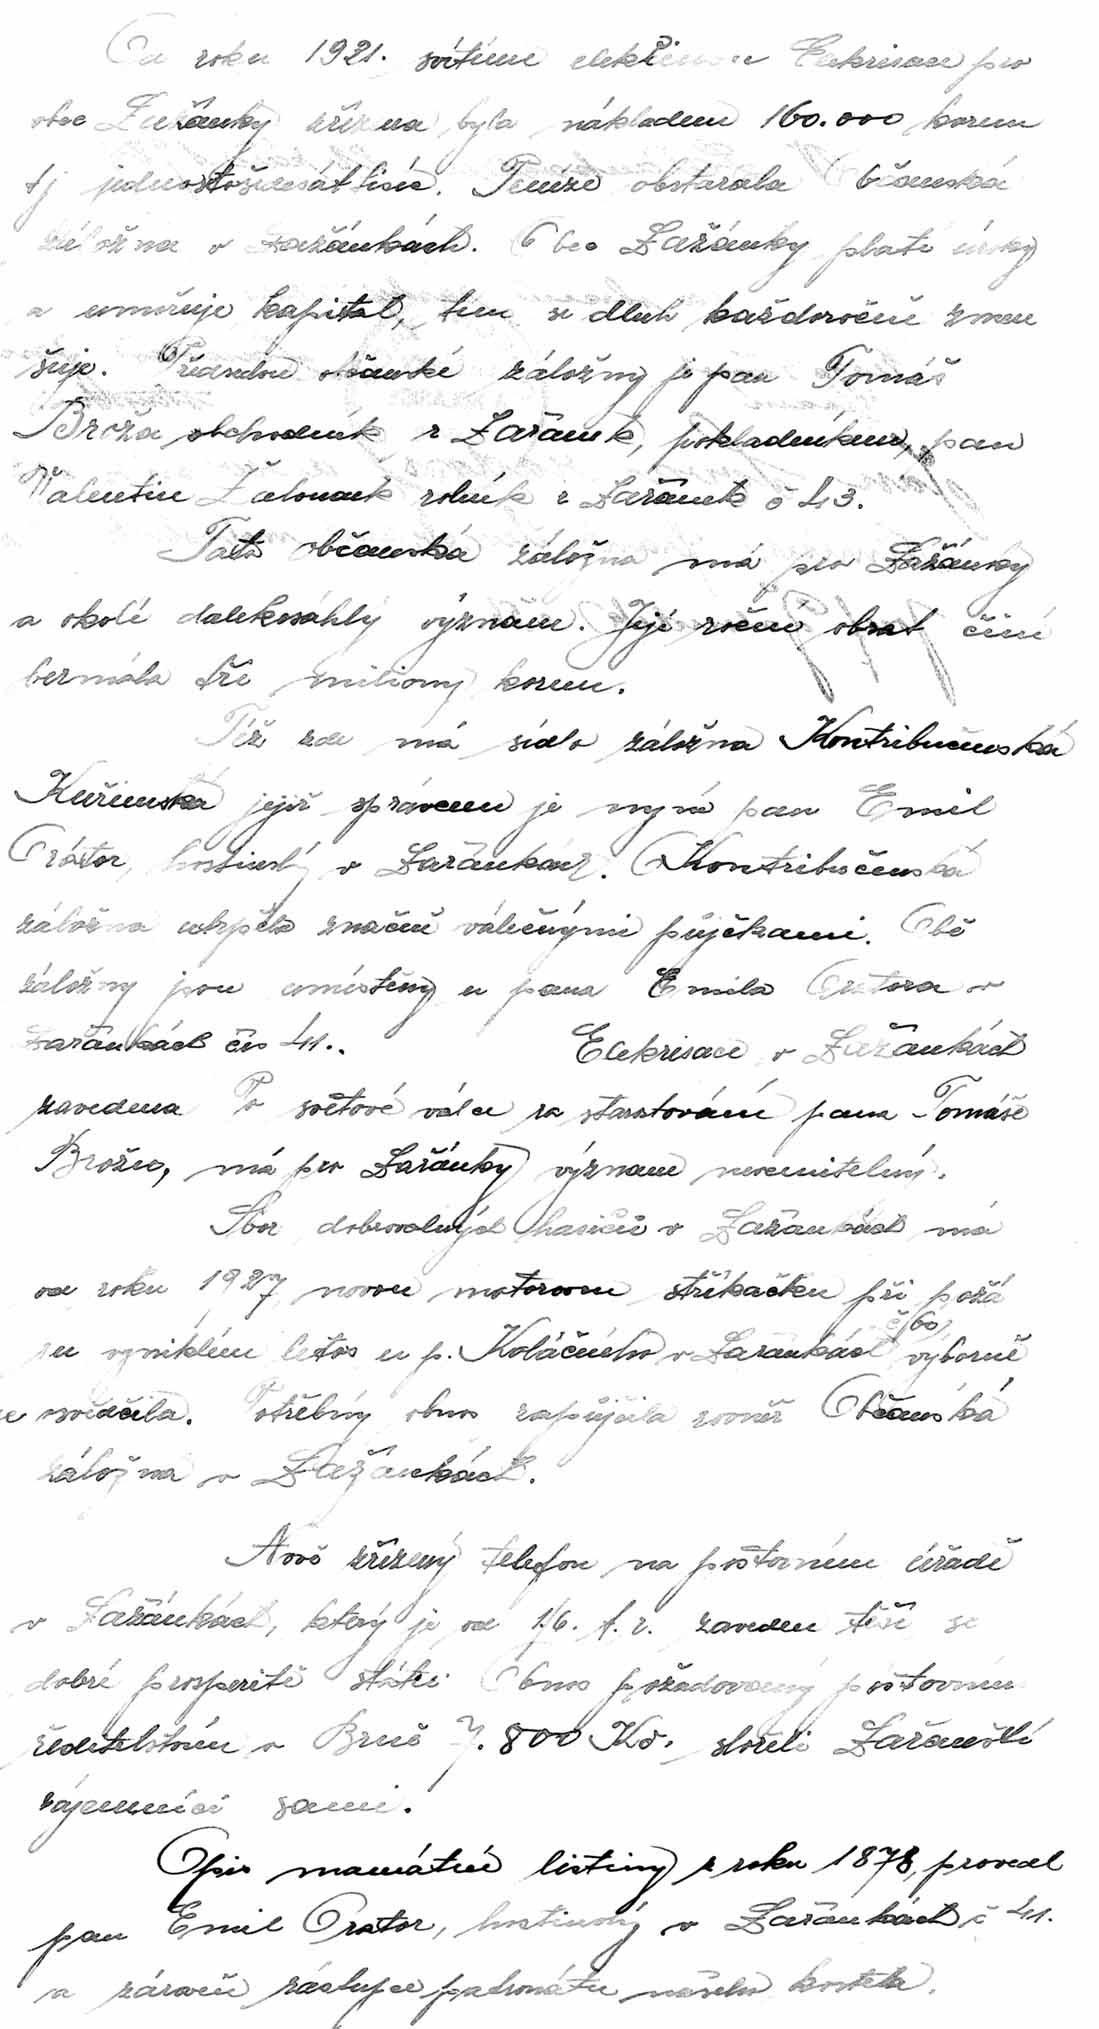 Od roku 1921. svítíme elektřinou Elekrisace pro
obec Lažánky zřízena byla nákladem 160.000 korun
tj jednostošedesát tisíc. Peníze obstarala Občanská
záložna v Lažánkách. Obec Lažánky platí úroky
a umořuje kapitál, tím se dluh každoročně zmen
šuje. Předsedou občanské záložny je pan Tomáš
Broža obchodník z Lažánek, pokladníkem, pan
Valentin Žalounek rolník z Lažánek č 43.
Tato občanská záložna má pro Lažánky
a okolí dalekosáhlý význam. Její roční obrat činí
bezmála tři miliony korun.
Též zde má sídlo záložna Kontribučenská
Kuřimská jejíž správcem je nyní pan Emil
Orátor, hostinský v Lažánkách. Kontribučenská
záložna utrpěla značně válečnými půjčkami. Obě
záložny jsou umístěny u pana Emila Oratora v
Lažánkách čís 41.. Elekrisace v Lažánkách
zavedena Po světové válce za starostování pana Tomáše
Brože, má pro Lažánky význam nesmírný.
Sbor dobrovolných hasičů v Lažánkách má
od roku 1927 novou motorovou stříkačku při požá
ru vzniklém letos u p. Koláčného v Lažánkách č 60, výborně
se osvědčila. Potřebný obnos zapůjčila rovněž Občanská
záložna v Lažánkách.
Nově zřízený telefon na poštovním úřadě
v Lažánkách, který je od 1/6. t. r. zaveden těší se
dobré prosperitě státní Obnos požadovaný poštovním
ředitelstvím v Brně 7.800 Kč. složili Lažánští
zájemníci sami.
Opis památné listiny z roku 1878, provedl
pan Emil Orator, hostinský v Lažánkách č 41.
a zároveň zástupce patronátu našeho kostela.